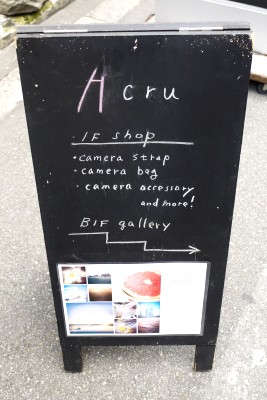 Acru
1F shop
• camera strap
• camera bag
• camera accessary
and more!
B1F gallery